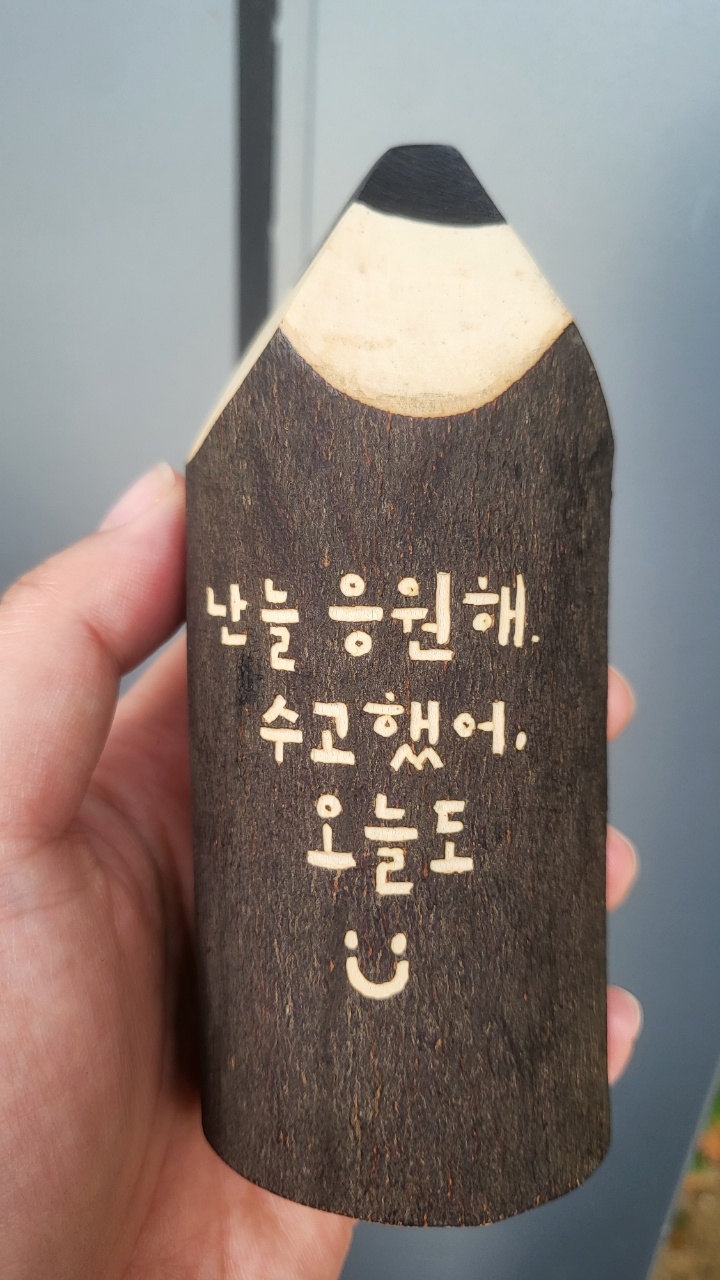 난 늘 응원해.
수고했어.
오늘도